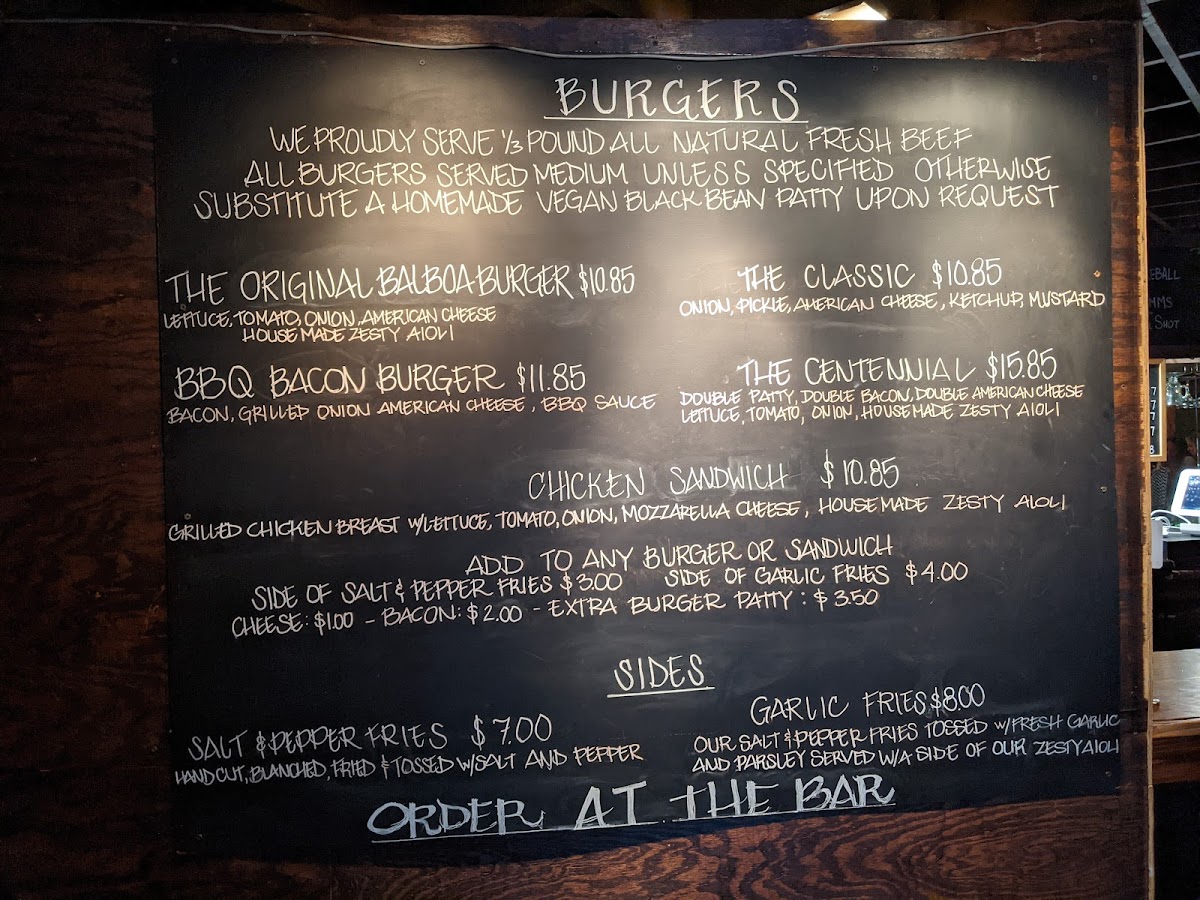 BURGERS
WE PROUDLY SERVE 1/3 POUND ALL NATURAL FRESH BEEF
ALL BURGERS SERVED MEDIUM UNLESS SPECIFIED OTHERWISE
SUBSTITUTE A HOMEMADE VEGAN BLACK BEAN PATTY UPON REQUEST
THE ORIGINAL BALBOA BURGER $10.85
LETTUCE, TOMATO, ONION, AMERICAN CHEESE
HOUSE MADE ZESTY AIOLI
THE CLASSIC $10.85
ONION, PICKLE, AMERICAN CHEESE, KETCHUP, MUSTARD
BBQ BACON BURGER $11.85
BACON, GRILLED ONION AMERICAN CHEESE, BBQ SAUCE
THE CENTENNIAL $15.85
DOUBLE PATTY, DOUBLE BACON, DOUBLE AMERICAN CHEESE
LETTUCE, TOMATO, ONION, HOUSEMADE ZESTY AIOLI
CHICKEN SANDWICH $10.85
GRILLED CHICKEN BREAST W/LETTUCE, TOMATO, ONION, MOZZARELLA CHEESE, HOUSEMADE ZESTY AIOLI
ADD TO ANY BURGER OR SANDWICH
SIDE OF SALT & PEPPER FRIES $3.00 SIDE OF GARLIC FRIES $4.00
CHEESE: $1.00 - BACON: $2.00 - EXTRA BURGER PATTY: $3.50
SIDES
SALT & PEPPER FRIES $7.00
HAND CUT, BLANCHED, FRIED & TOSSED W/SALT AND PEPPER
GARLIC FRIES $8.00
OUR SALT & PEPPER FRIES TOSSED W/FRESH GARLIC
AND PARSLEY SERVED W/A SIDE OF OUR ZESTY AIOLI
ORDER AT THE BAR
SHOT